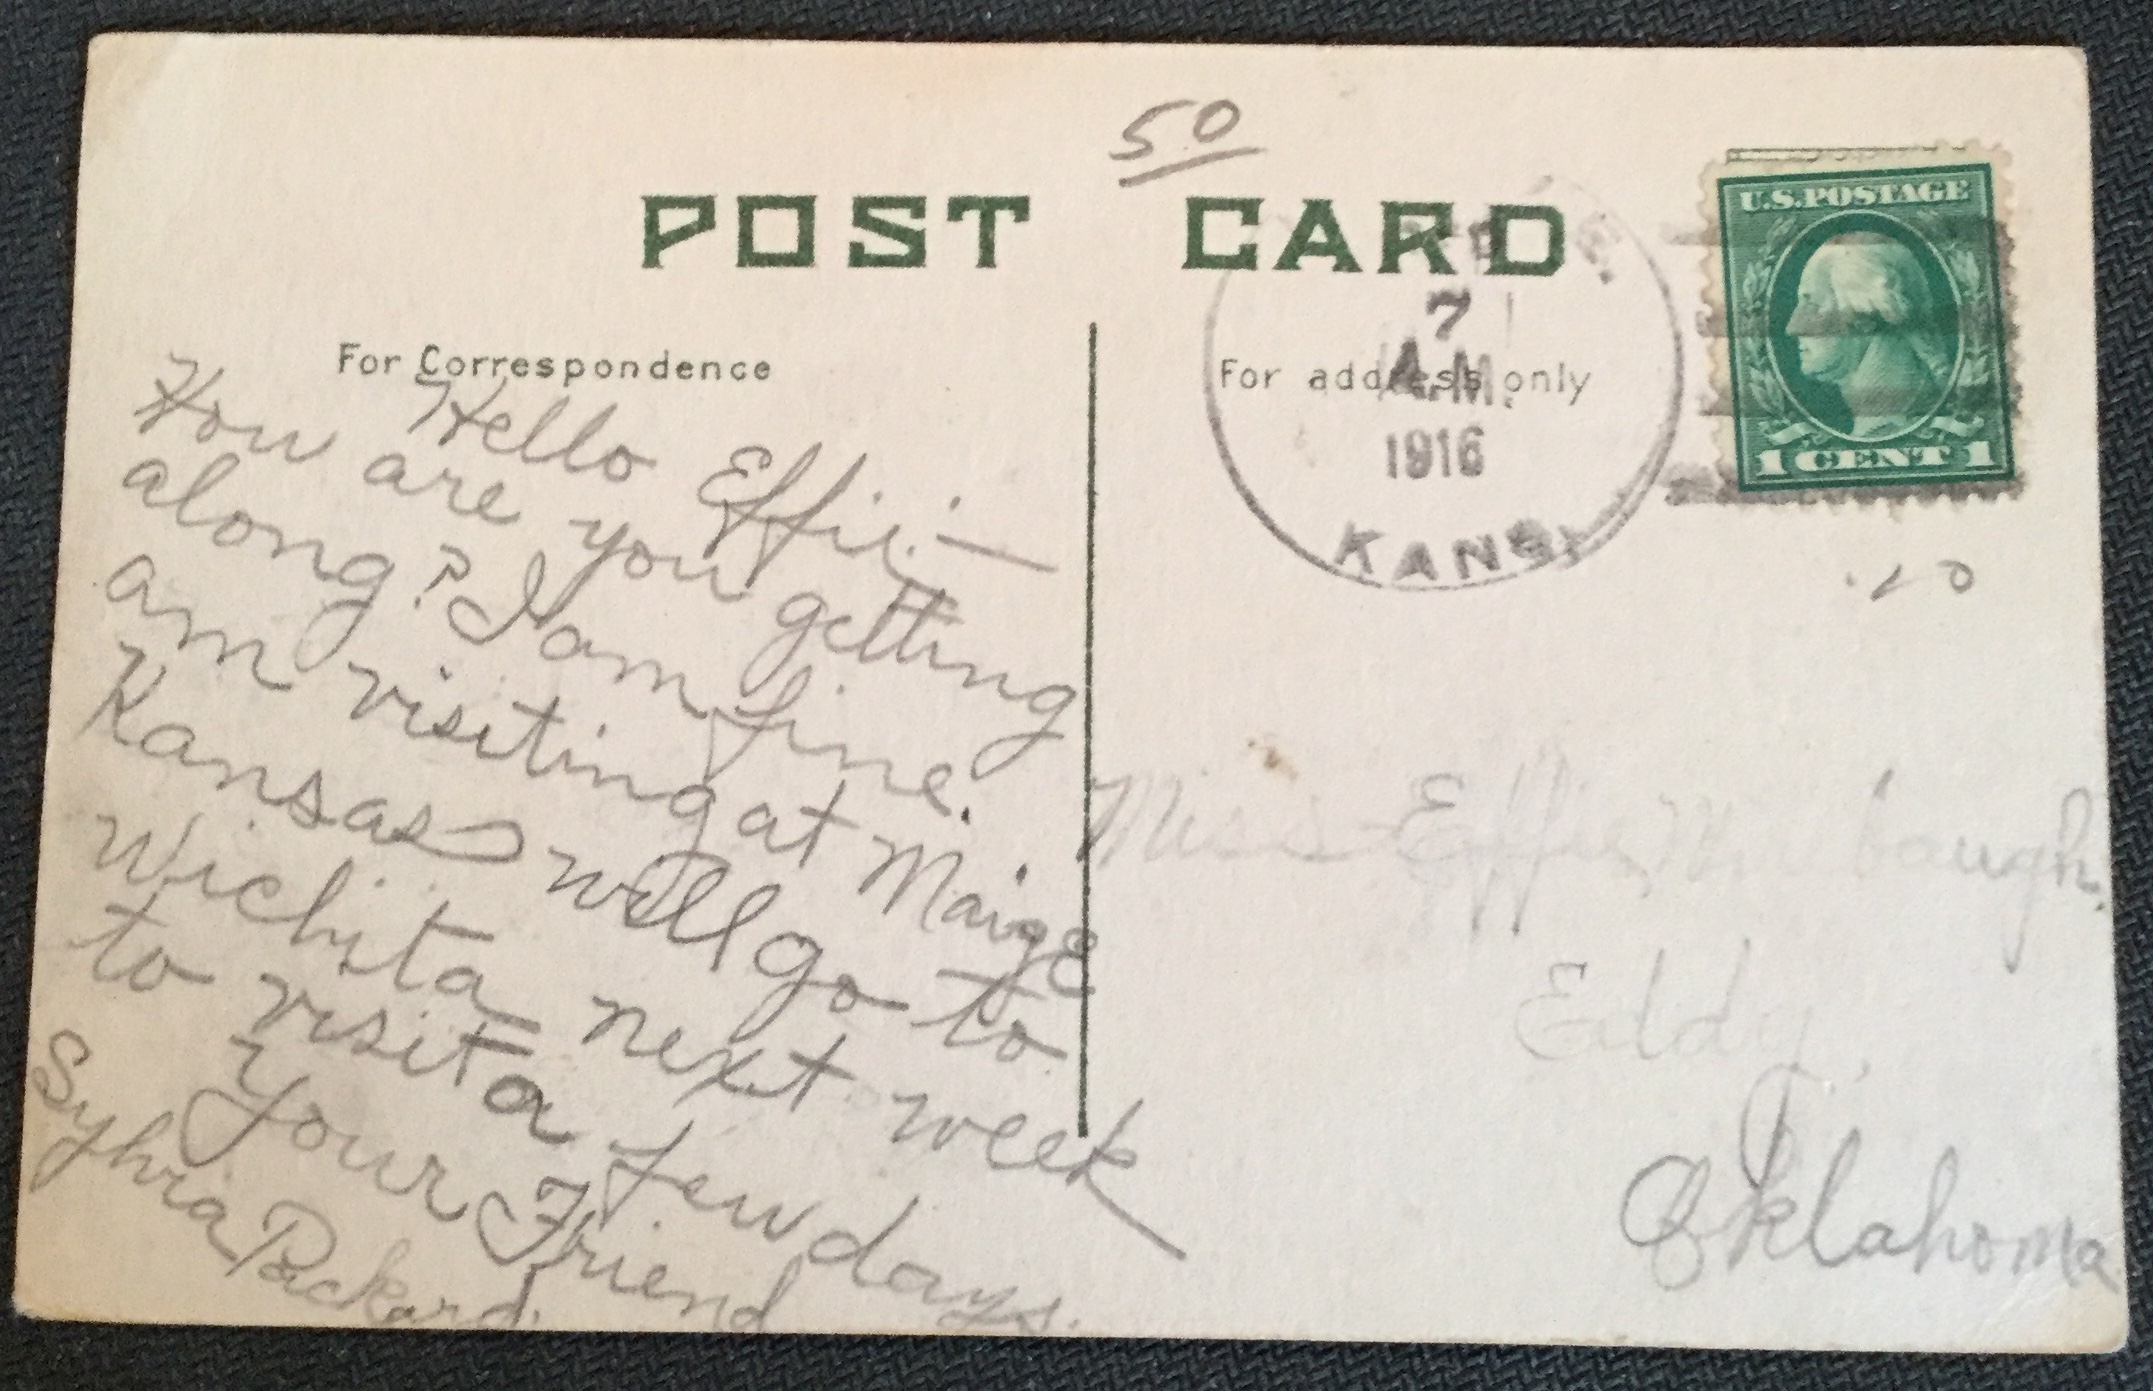 50
POST CARD
For Correspondence
Hello Effie:—
How are you getting
along? I am fine.
am visiting at Maize
Kansas will go to
Wichita next week
to visit a few days.
Your Friend
Sylvia Packard.
For address only
7
A.M.
1916
KANS.
U.S. POSTAGE
1 CENT 1
Miss Effie
Eddy,
Oklahoma